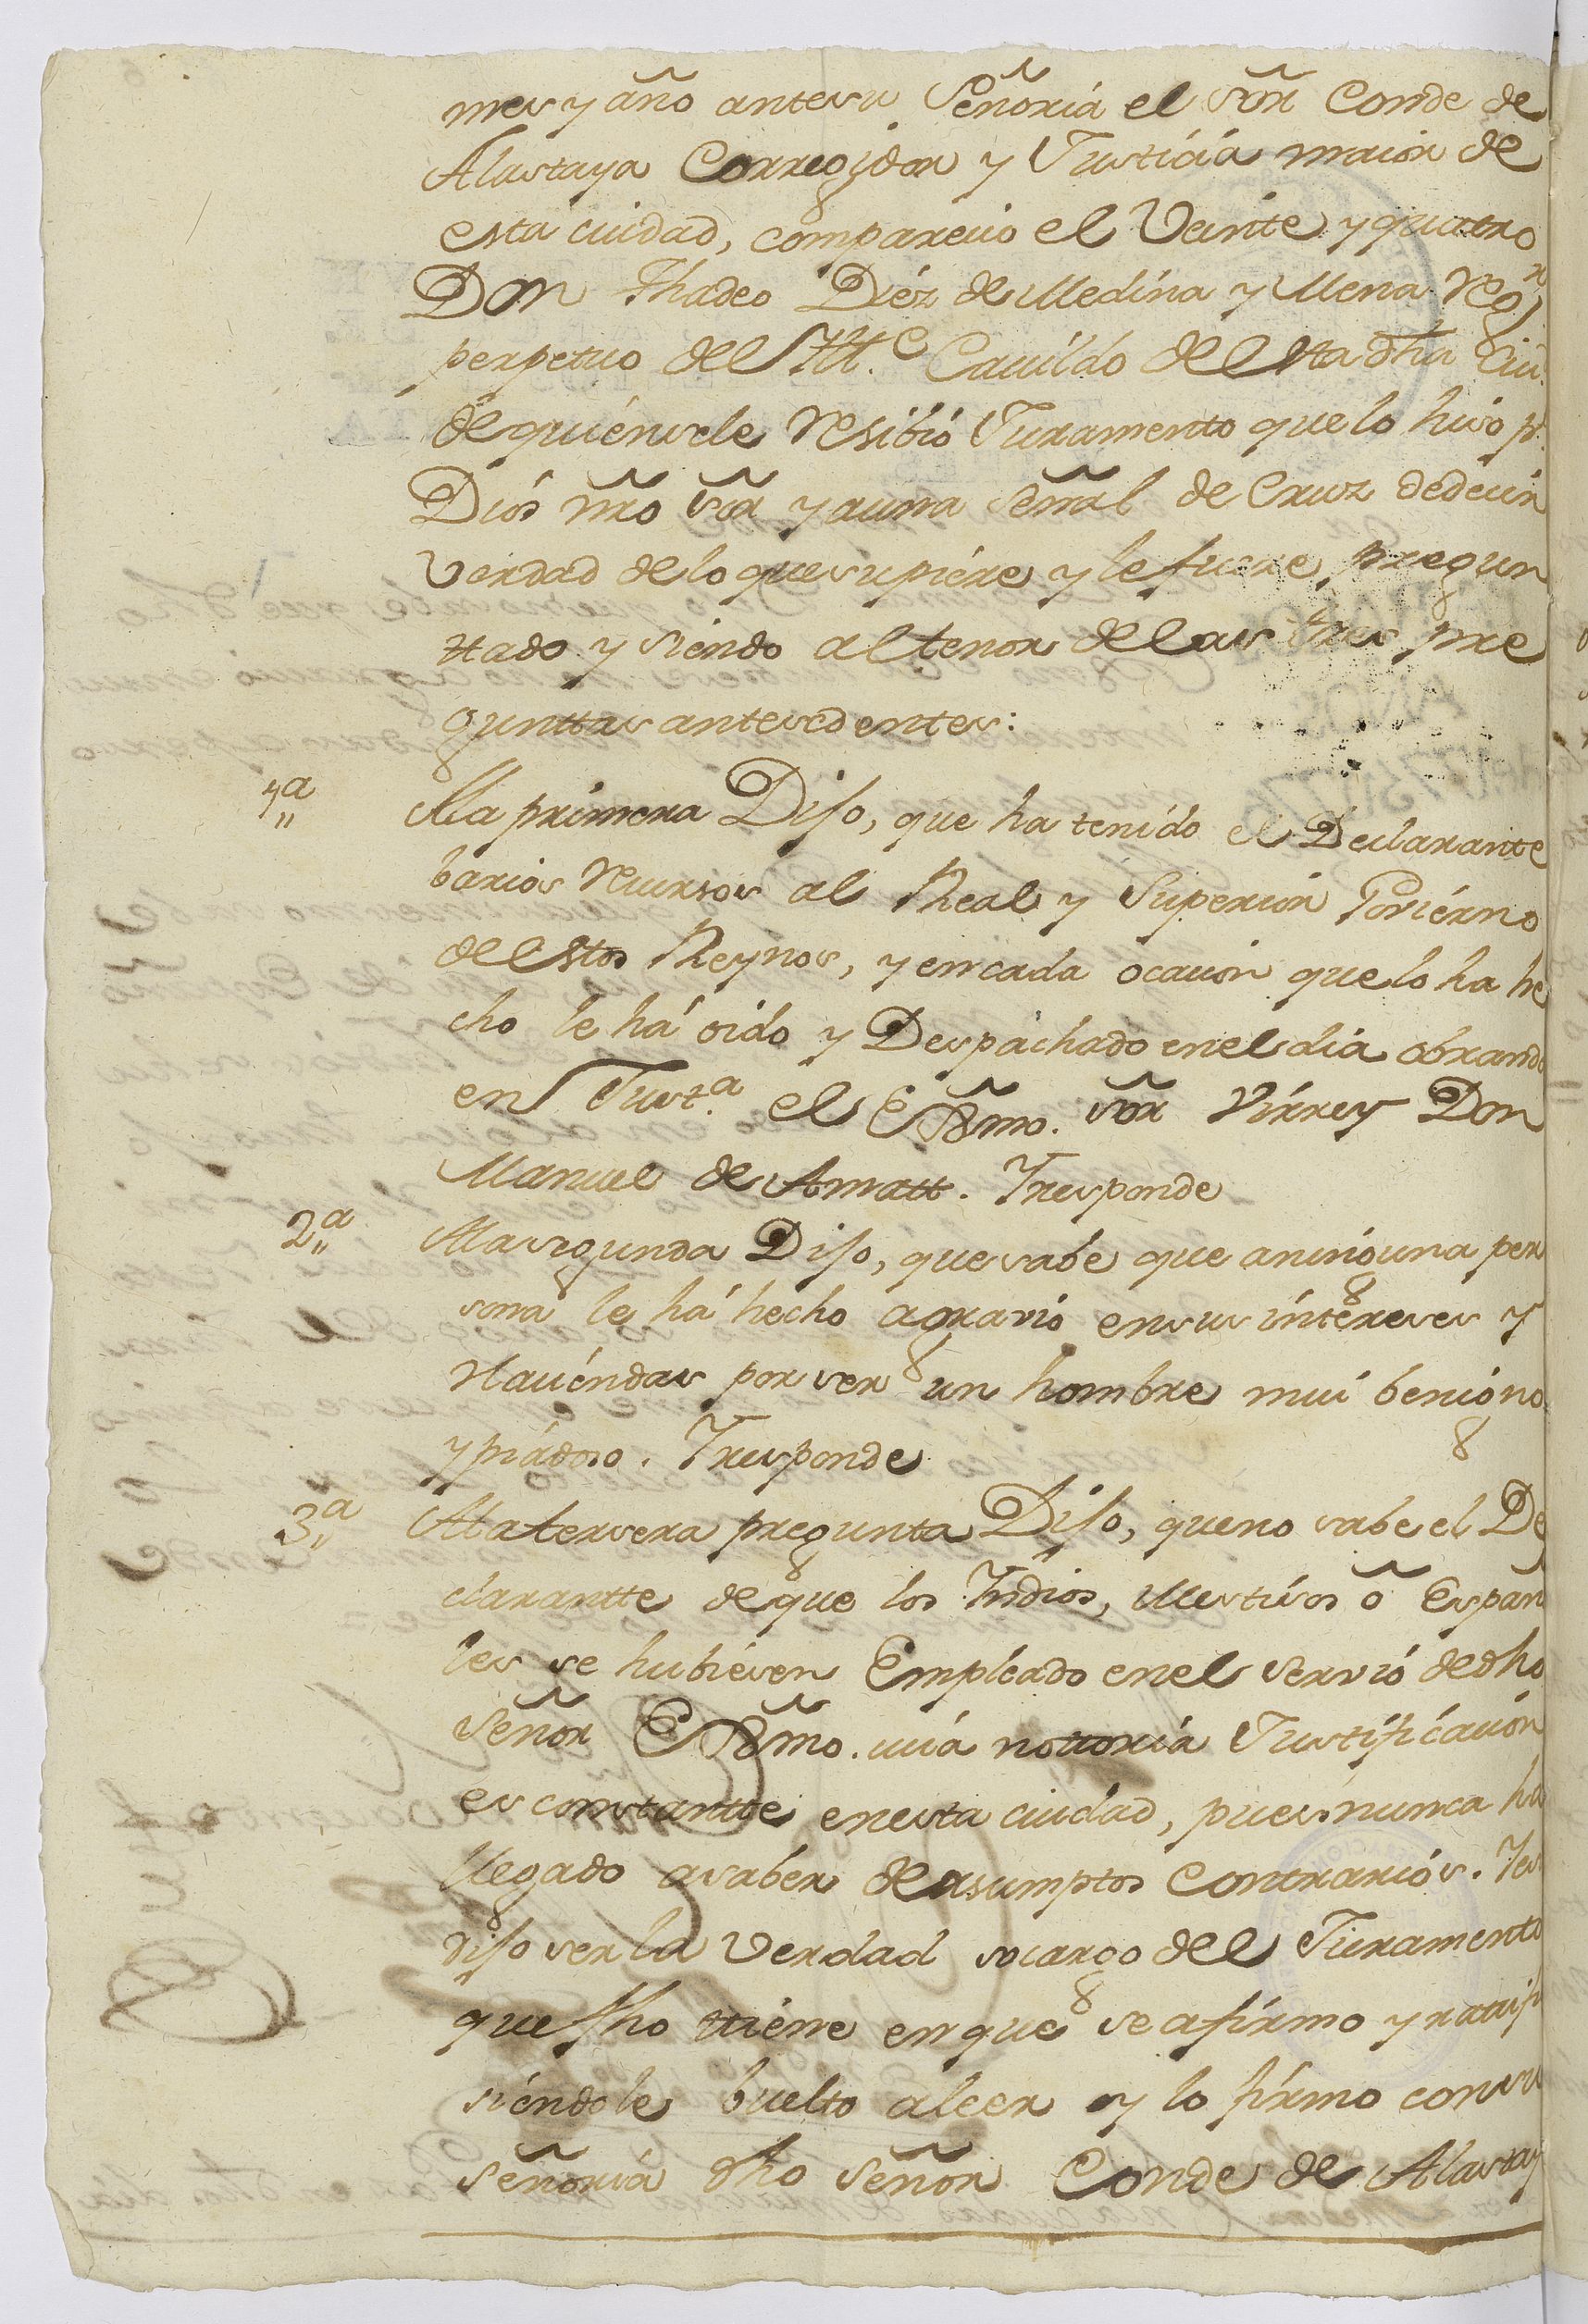 mes y año ante su Señoria el señor Conde de
Alastaya Corregidor y Justicia maior de
esta ciudad, comparecio el Veinte y quatro
Don Thadeo Diéz de Medina y Mena Reg.r
perpetuo del Itt.e Cavildo de esta dha Ciu.
de quién se le resibió Juramento que lo hiso p.
Diós nro sōr y a una señal de Cruz de decir
verdad de lo que supiére y le fuere pregun
ttado y siendo al tenor de las tres pre
gunttas antesedentes:
1.a Ala primera Dijo, que ha tenido el Declarante
barios recursos al Real y Superior Goviérno
de estos Reynos, y en cada ocacion que lo ha he
cho le há oido y Despachado en el dia obrando
en Just.a el Exmo. sōr Virrey Don
Manuel de Amatt. Yresponde
2.a Ala segunda Dijo, que sabe que aninguna per
sona le há hecho agravio en sus intereses y
Haciéndas por ser un hombre mui benigno
y piadoso. Yresponde
3.a Ala tersera pregunta Dijo, que no sabe el De
clarantte de que los Yndios, Mestisos o Españ
les se hubiesen Empleado en el servió de dho
Señor Exmo. cuia nottoria Justificación
es constantte en esta ciudad, pues nunca ha
llegado a saber de asumptos Contrariós. Yes
dijo ser la Verdad so cargo del Juramento
que fho ttiéne en que se afirmo y rattifi
siéndole buelto a leer y lo firmo con su
señoria dho señor Conde de Alastay